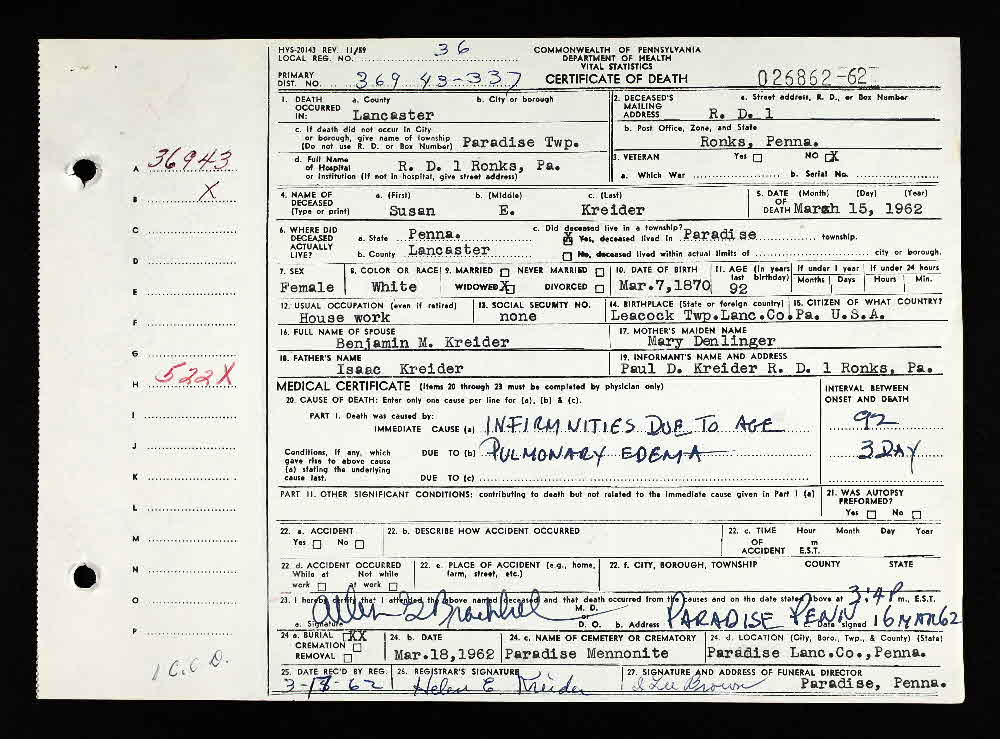 HVS-20143 REV. 11/59
LOCAL REG. NO. 36
COMMONWEALTH OF PENNSYLVANIA
DEPARTMENT OF HEALTH
VITAL STATISTICS
CERTIFICATE OF DEATH
PRIMARY
DIST. NO. 369 43-337
026862-62
1. DEATH OCCURRED IN: a. County b. City or borough
Lancaster
c. If death did not occur in City or borough, give name of township (Do not use R. D. or Box Number) Paradise Twp.
d. Full Name of Hospital or Institution (If not in hospital, give street address) R. D. 1 Ronks, Pa.
2. DECEASED'S MAILING ADDRESS a. Street address, R. D., or Box Number
R. D. 1
b. Post Office, Zone, and State
Ronks, Penna.
3. VETERAN Yes NO X
a. Which War b. Serial No.
4. NAME OF DECEASED (Type or print) a. (First) b. (Middle) c. (Last)
Susan E. Kreider
5. DATE OF DEATH (Month) (Day) (Year)
March 15, 1962
6. WHERE DID DECEASED ACTUALLY LIVE? a. State Penna.
b. County Lancaster
c. Did deceased live in a township?
X Yes, deceased lived in Paradise township.
No, deceased lived within actual limits of city or borough.
7. SEX
Female
8. COLOR OR RACE
White
9. MARRIED NEVER MARRIED
WIDOWED X DIVORCED
10. DATE OF BIRTH
Mar.7,1870
11. AGE (in years last birthday)
92
If under 1 year If under 24 hours
Months Days Hours Min.
12. USUAL OCCUPATION (even if retired)
House work
13. SOCIAL SECURITY NO.
none
14. BIRTHPLACE (State or foreign country)
Leacock Twp.Lanc.Co.Pa.
15. CITIZEN OF WHAT COUNTRY?
U.S.A.
16. FULL NAME OF SPOUSE
Benjamin M. Kreider
17. MOTHER'S MAIDEN NAME
Mary Denlinger
18. FATHER'S NAME
Isaac Kreider
19. INFORMANT'S NAME AND ADDRESS
Paul D. Kreider R. D. 1 Ronks, Pa.
MEDICAL CERTIFICATE (Items 20 through 23 must be completed by physician only)
20. CAUSE OF DEATH: Enter only one cause per line for (a), (b) & (c).
INTERVAL BETWEEN ONSET AND DEATH
PART I. Death was caused by:
IMMEDIATE CAUSE (a) INFIRMNITIES DUE TO AGE 92
Conditions, if any, which gave rise to above cause (a) stating the underlying cause last.
DUE TO (b) PULMONARY EDEMA 3 DAY
DUE TO (c)
PART II. OTHER SIGNIFICANT CONDITIONS: contributing to death but not related to the immediate cause given in Part I (a)
21. WAS AUTOPSY PREFORMED?
Yes No
22. a. ACCIDENT
Yes No
22. b. DESCRIBE HOW ACCIDENT OCCURRED
22. c. TIME OF ACCIDENT Hour Month Day Year
m E.S.T.
22. d. ACCIDENT OCCURRED
While at work Not while at work
22. e. PLACE OF ACCIDENT (e.g., home, farm, street, etc.)
22. f. CITY, BOROUGH, TOWNSHIP COUNTY STATE
23. I hereby certify that I attended the above named deceased and that death occurred from the causes and on the date stated above at 3:4 P m., E.S.T.
a. Signature M. D. or D. O. b. Address PARADISE PENN Date signed 16 MAR 62
24 a. BURIAL XX
CREMATION
REMOVAL
24. b. DATE
Mar.18,1962
24. c. NAME OF CEMETERY OR CREMATORY
Paradise Mennonite
24. d. LOCATION (City, Boro., Twp., & County) (State)
Paradise Lanc.Co.,Penna.
25. DATE REC'D BY REG.
26. REGISTRAR'S SIGNATURE
Helen E. Kreider
27. SIGNATURE AND ADDRESS OF FUNERAL DIRECTOR
Brown Paradise, Penna.
A 36943
B X
C
D
E
F
G
H 522X
I
J
K
L
M
N
O
P
1 C.C.D.